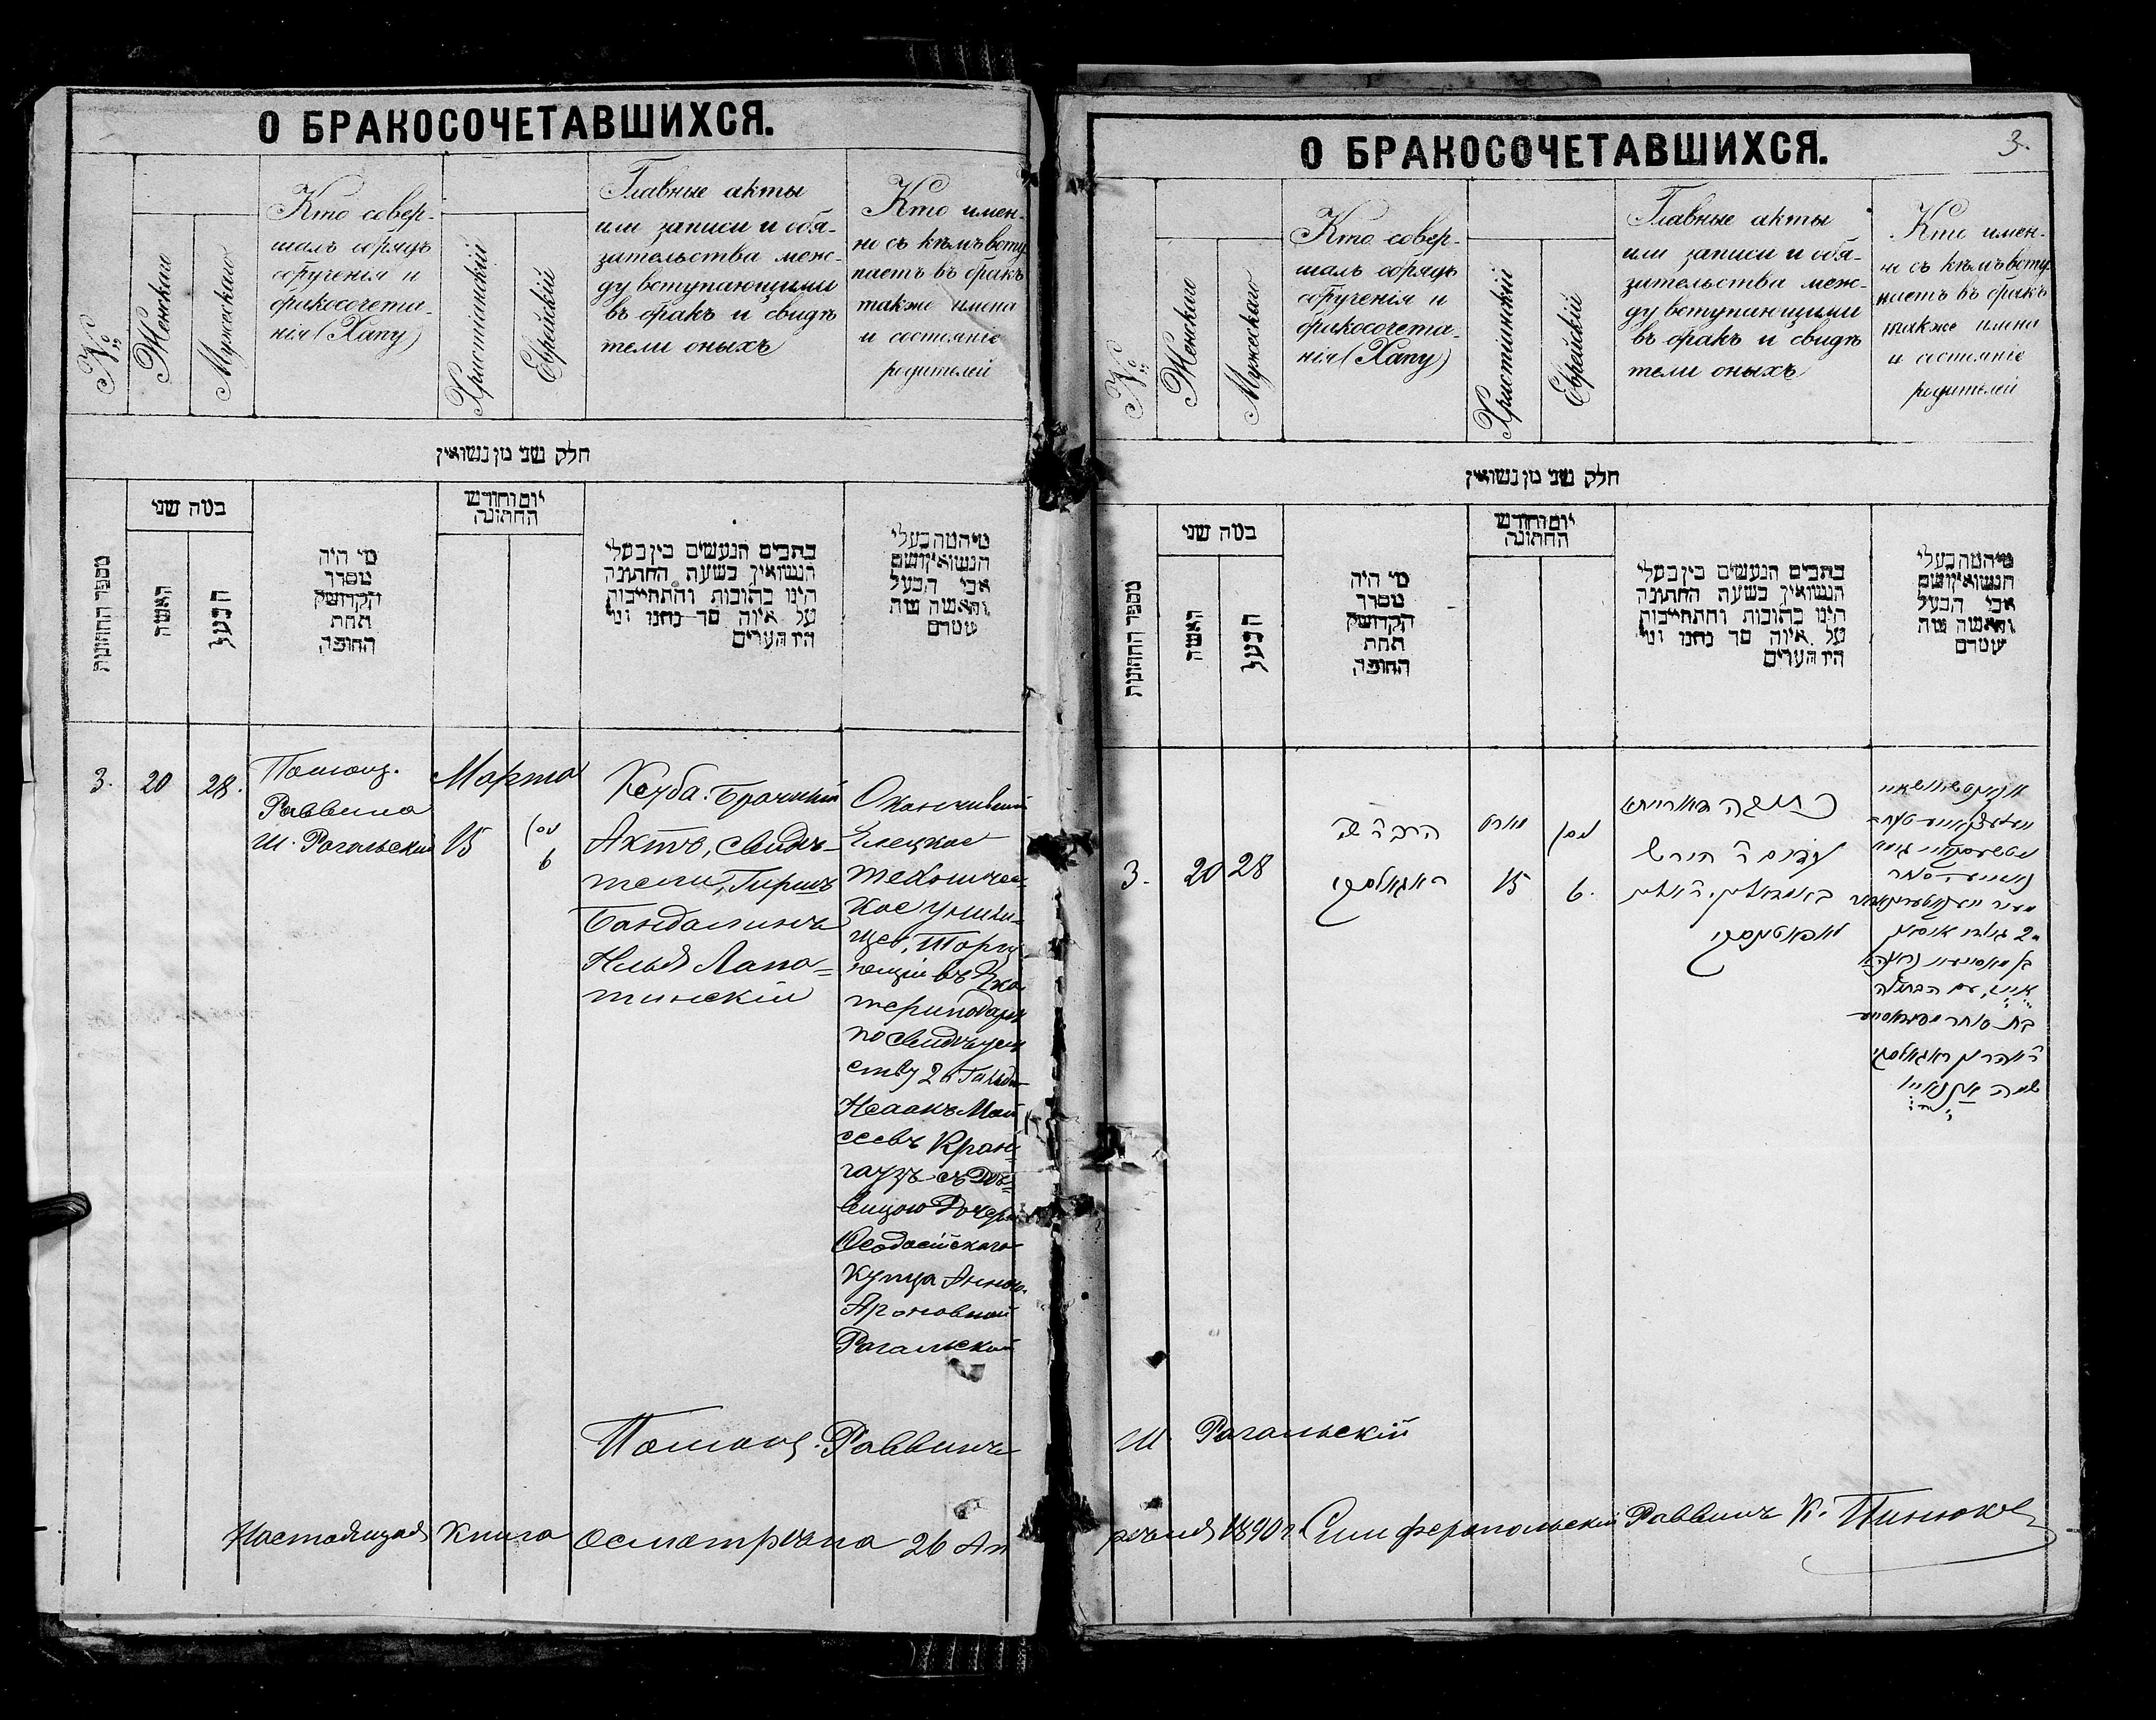 О БРАКОСОЧЕТАВШИХСЯ.
№
Женскаго
Мужескаго
Кто совер-
шалъ обрядъ
обрученія и
бракосочета-
нія (Хапу)
Христіанскій
Еврейскій
Главные акты
или записи и обя-
зательства меж-
ду вступающими
въ бракъ и свидѣ
тели оныхъ
Кто имен-
но съ кѣмъ всту
паетъ въ бракъ
также имена
и состояніе
родителей
חלק שני מן נשואין
מספר החתונות
כמה שני
האשה
הבעל
מי היה
מסדר
הקדושין
תחת
החופה
יום וחודש
החתונה
כתבים הנעשים בין בעלי
הנשואין בשעת החתונה
הינו כתובות והתחייבות
על איזה סך נתנו ומי
היו העדים
מי המה בעלי
הנשואין ושם
אבי הבעל
והאשה ומה
שמם
3.
20
28.
Помощ.
Раввина
Ш. Рогальскій
Марта
15
ניסן
6
Кетуба. Брачный
Актъ, свидѣ-
тели, Гиршъ
Бандалинъ
Илья Лапа-
тинскій
Окончившій
Елецкое
техничес-
кое учили-
ще, торгу
ющій въ Ека
теринодарѣ
по свидѣтель
ству 2й Гильд
Исаакъ Мои
сеевъ Кран-
гаузъ съ Дѣ-
вицою Дочерю
Ѳеодосійскаго
Купца Анною
Ароновной
Рогальской
Помощ. Раввинъ
Настоящая книга осмотрѣна 26 Ап
О БРАКОСОЧЕТАВШИХСЯ.
3.
№
Женскаго
Мужескаго
Кто совер-
шалъ обрядъ
обрученія и
бракосочета-
нія (Хапу)
Христіанскій
Еврейскій
Главные акты
или записи и обя-
зательства меж-
ду вступающими
въ бракъ и свидѣ
тели оныхъ
Кто имен-
но съ кѣмъ всту
паетъ въ бракъ
также имена
и состояніе
родителей
חלק שני מן נשואין
מספר החתונות
כמה שני
האשה
הבעל
מי היה
מסדר
הקדושין
תחת
החופה
יום וחודש
החתונה
כתבים הנעשים בין בעלי
הנשואין בשעת החתונה
הינו כתובות והתחייבות
על איזה סך נתנו ומי
היו העדים
מי המה בעלי
הנשואין ושם
אבי הבעל
והאשה ומה
שמם
3.
20
28
הרב ר' ש
ראגאלסקי
מארט
15
ניסן
6.
כתובה דאורייתא
עדים ר' הירש
לאפאטינסקי
עם הבתולה
בת סוחר
ר' אהרן ראגאלסקי
Ш. Рогальскій
рѣля 1890 г. Симферопольскій Раввинъ К. Пинюкъ